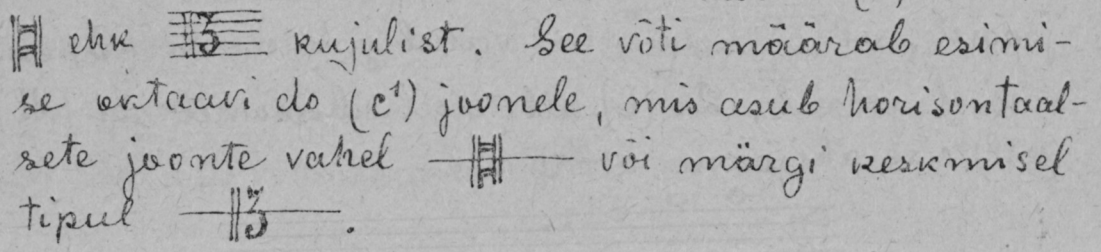 ehk kujulist. See võti määrab esimi-
se oktaavi do (c¹) joonele, mis asub horisontaal-
sete joonte vahel või märgi keskmisel
tipul .